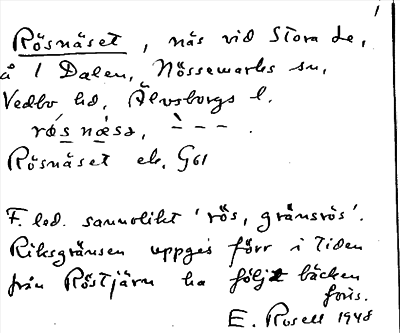 1
Rösnäset, näs vid Stora Le,
å 1 Dalen, Nössemarks sn,
Vedbo hd, Älvsborgs l.
rǿs næsə, – – – .
Rösnäset ek. G61
F. led. sannolikt 'rös, gränsrös'.
Riksgränsen uppges förr i tiden
från Röstjärn ha följt bäcken
förbi.
E. Rosell 1948